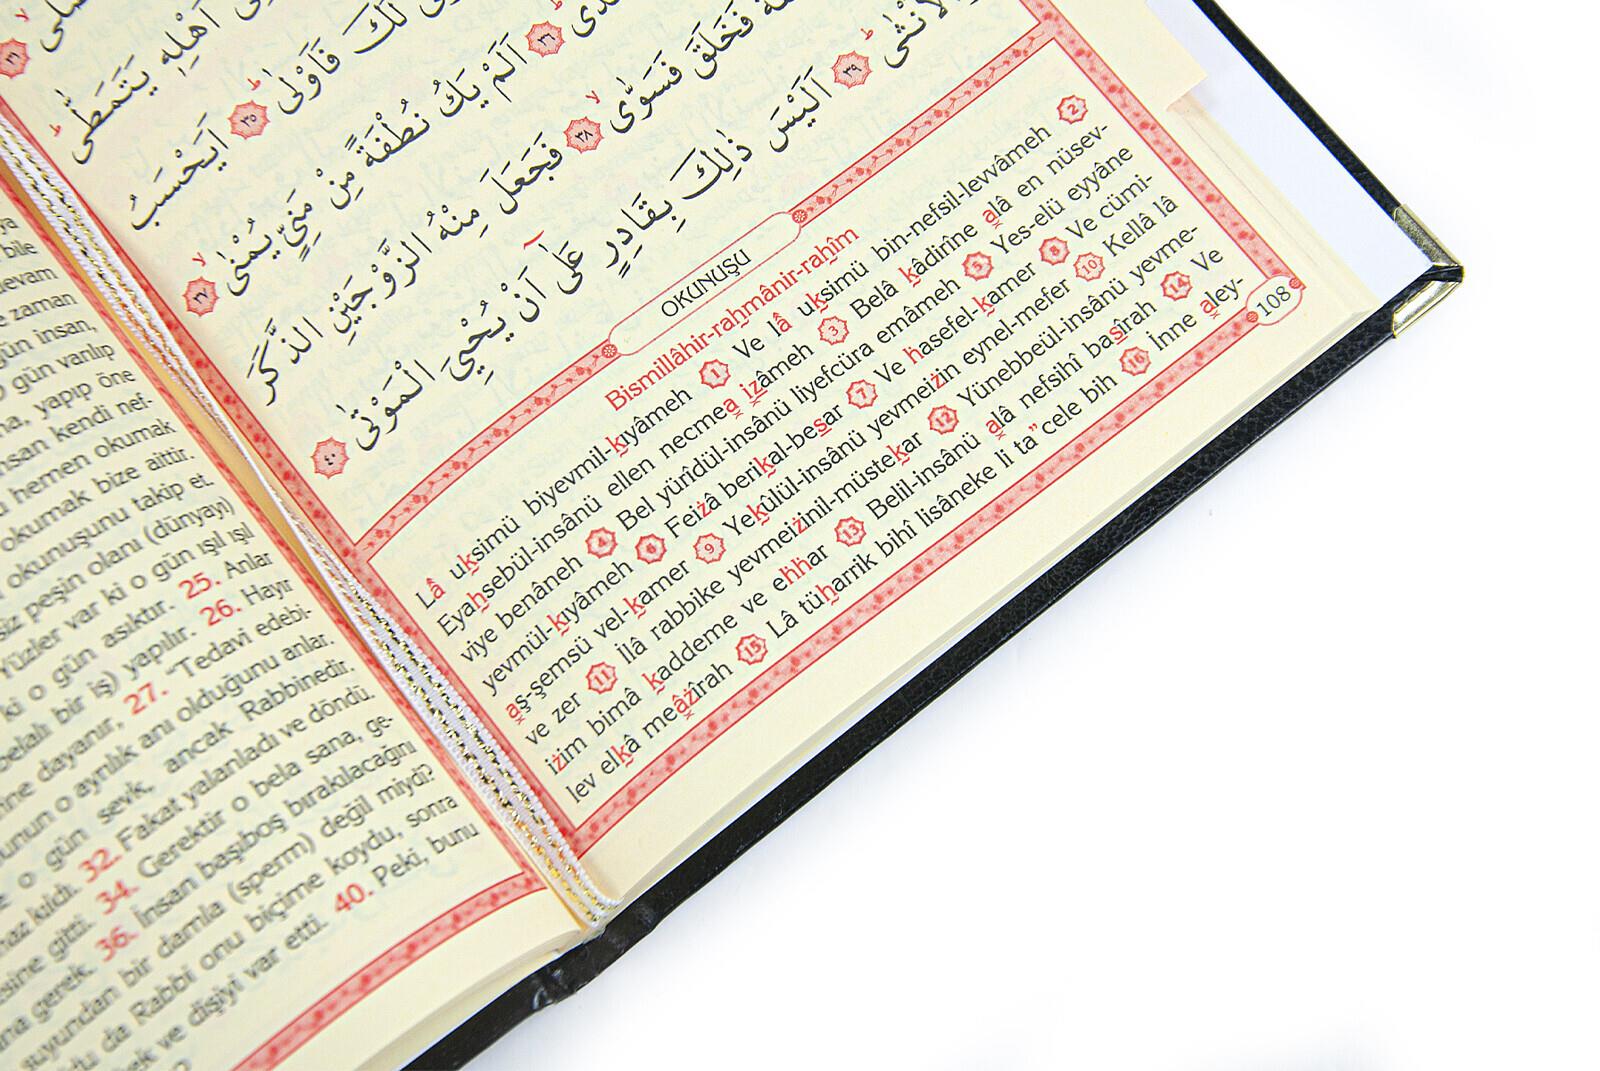 بنى
اَهْلِه۪ يَتَمَطّٰىۜ
لَكَ فَاَوْلٰىۜ ﴿٣٥﴾ اَيَحْسَبُ
﴿٣٦﴾ اَلَمْ يَكُ نُطْفَةً مِنْ مَنِيٍّ يُمْنٰىۙ ﴿٣٧﴾
فَخَلَقَ فَسَوّٰىۙ ﴿٣٨﴾ فَجَعَلَ مِنْهُ الزَّوْجَيْنِ الذَّكَرَ
وَالْاُنْثٰىۜ ﴿٣٩﴾ اَلَيْسَ ذٰلِكَ بِقَادِرٍ عَلٰٓى اَنْ يُحْيِيَ الْمَوْتٰى ﴿٤٠﴾
OKUNUŞU
Bismillâhir-rahmânir-rahîm
Lâ uksimü biyevmil-kıyâmeh 1 Ve lâ uksimü bin-nefsil-levvâmeh 2
Eyahsebül-insânü ellen necmea izâmeh 3 Belâ kâdirîne alâ en nüsev-
viye benâneh 4 Bel yürîdül-insânü liyefcüra emâmeh 5 Yes-elü eyyâne
yevmül-kıyâmeh 6 Feizâ berikal-besar 7 Ve hasefel-kamer 8 Ve cümi-
aş-şemsü vel-kamer 9 Yekûlül-insânü yevmeizin eynel-mefer 10 Kellâ lâ
ve zer 11 İlâ rabbike yevmeizinil-müstekar 12 Yünebbeül-insânü yevme-
izim bimâ kaddeme ve ehhar 13 Belil-insânü alâ nefsihî basîrah 14 Ve
lev elkâ meâzîrah 15 Lâ tüharrik bihî lisâneke li ta" cele bih 16 İnne aley-
108
ya
bile
devam
zaman
gün insan,
gün varılıp
yapıp öne
insan kendi nef-
hemen okumak
okumak bize aittir.
okunuşunu takip et.
siz peşin olanı (dünyayı)
Yüzler var ki o gün ışıl ışıl
ki o gün asıktır. 25. Anlar
belalı bir iş) yapılır. 26. Hayır
dayanır, 27. "Tedavi edebi-
bunun o ayrılık anı olduğunu anlar.
o gün sevk, ancak Rabbinedir.
kıldı. 32. Fakat yalanladı ve döndü.
gitti. 34. Gerektir o bela sana, ge-
gerek. 36. İnsan başıboş bırakılacağını
suyundan bir damla (sperm) değil miydi?
da Rabbi onu biçime koydu, sonra
ve dişiyi var etti. 40. Peki, bunu